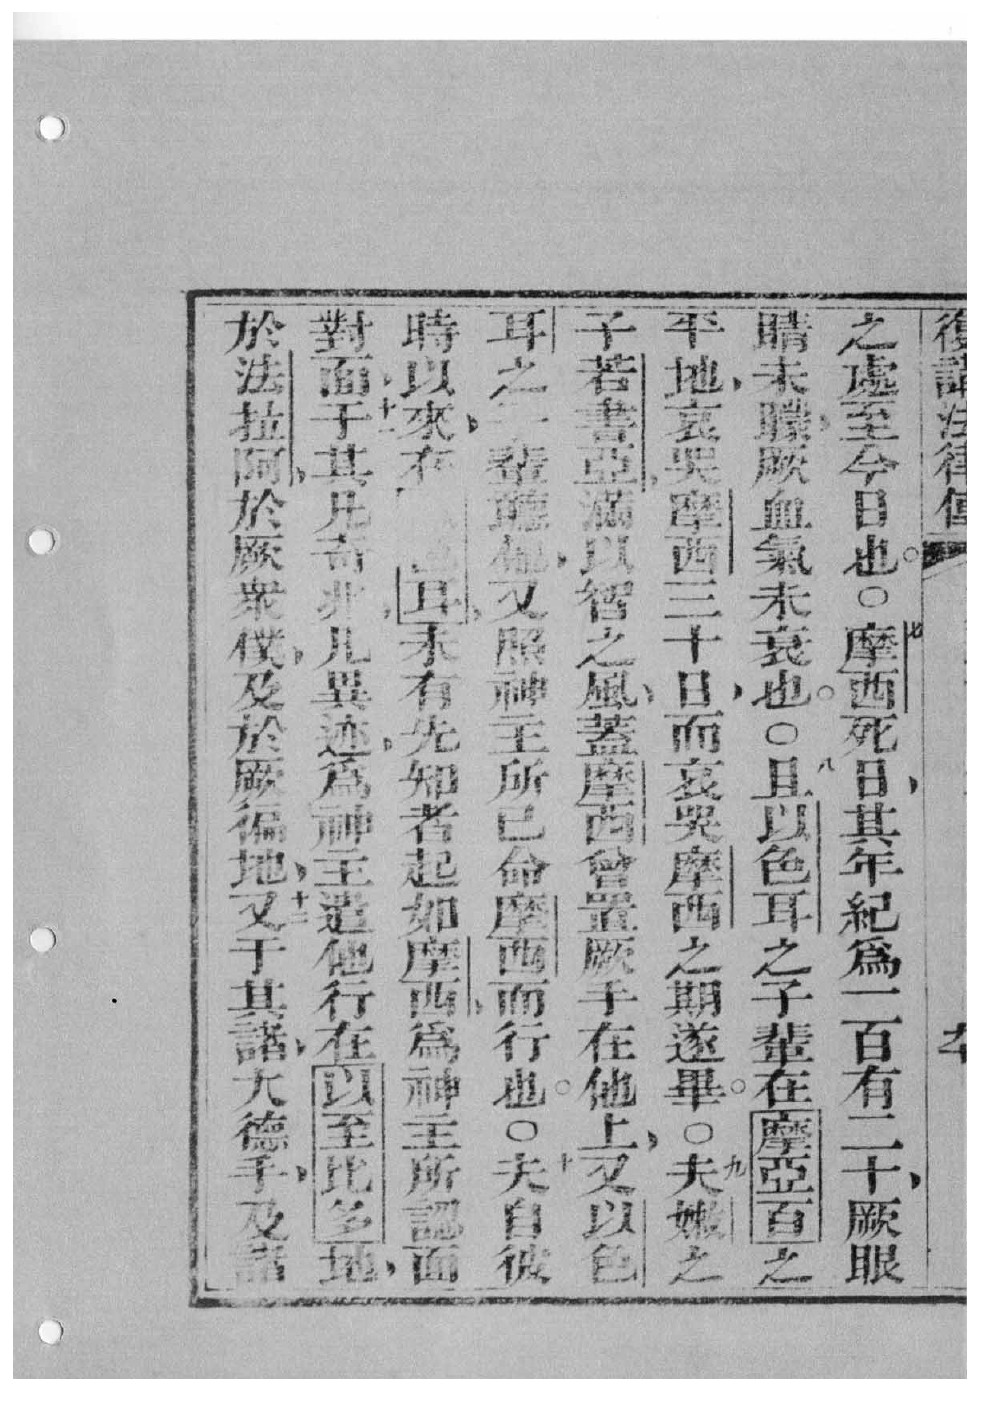 復講法律傳
之處至今日也。○七摩西死日、其年紀爲一百有二十、厥眼
睛未矇、厥血氣未衰也。○八且以色耳之子輩在摩亞百之
平地、哀哭摩西三十日、而哀哭摩西之期遂畢。○九夫嫩之
子若書亞、滿以智之風、蓋摩西曾置厥手在他上、又以色
耳之子輩聽他、又照神主所已命摩西而行也。○十夫自彼
時以來、在以色耳、未有先知者起如摩西、爲神主所認面
對面、十一于其凡奇兆、凡異迹、爲神主遣他行在以至比多地、
於法拉阿、於厥衆僕、及於厥徧地、十二又于其諸、大德手、及諸